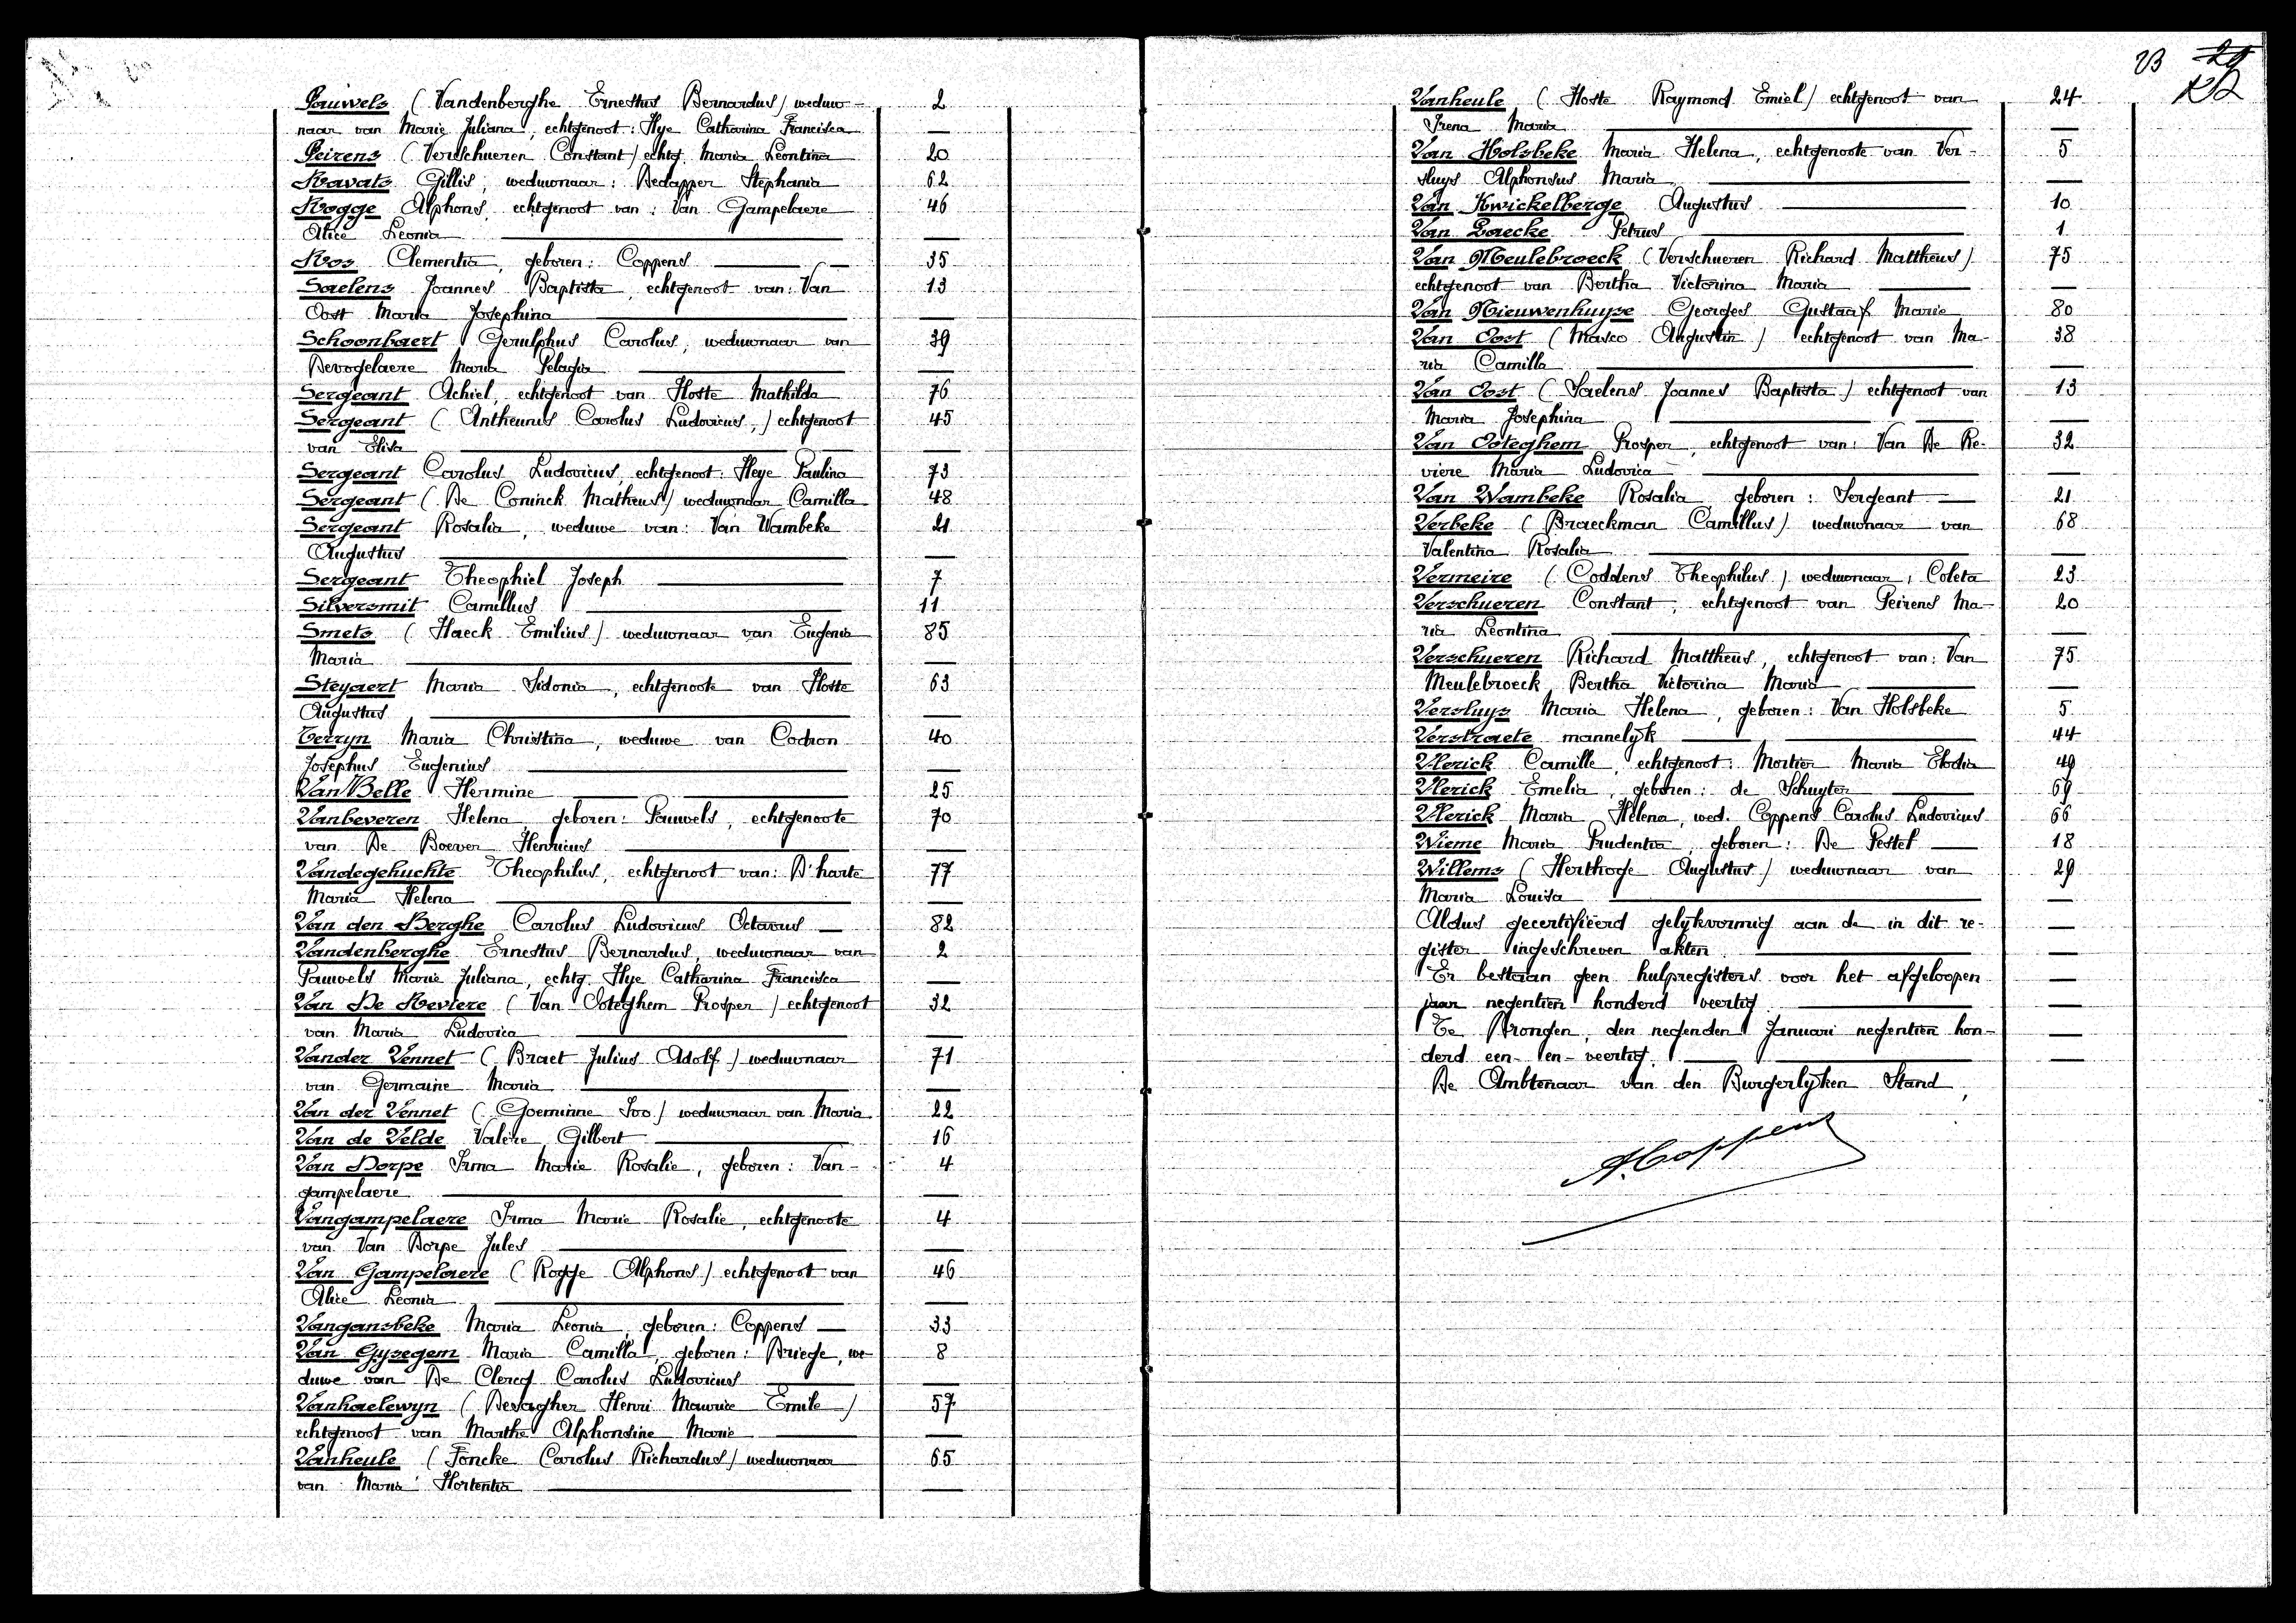 Pauwels (Vandenberghe Ernestus Bernardus) weduw- 2
naar van Marie Juliana, echtgenoot: Hye Catharina Francisca
Peirens (Verschueren Constant) echtg. Maria Leontina 20
Ravats Gillis, weduwnaar: Dedapper Stephania 62
Rogge Alphons, echtgenoot van: Van Gampelaere 46
Alice Leonia
Ros Clementia, geboren: Coppens 35
Saelens Joannes Baptista, echtgenoot van: Van 13
Oost Maria Josephina
Schoonbaert Gerulphus Carolus, weduwnaar van 39
Devogelaere Maria Pelagia
Sergeant Achiel, echtgenoot van Hoste Mathilda 76
Sergeant (Antheunis Carolus Ludovicus,) echtgenoot 45
van Elisa
Sergeant Carolus Ludovicus, echtgenoot: Heye Paulina 73
Sergeant (De Coninck Matheus) weduwnaar Camilla 48
Sergeant Rosalia, weduwe van: Van Wambeke 21
Augustus
Sergeant Theophiel Joseph 7
Silversmit Camillus 11
Smets (Haeck Emilius) weduwnaar van Eugenia 85
Maria
Steyaert Maria Sidonia, echtgenoote van Hoste 63
Augustus
Terryn Maria Christina, weduwe van Cochon 40
Josephus Eugenius
Van Belle Hermine 25
Vanbeveren Helena, geboren: Pauwels, echtgenoote 70
van De Boever Henricus
Vandegehuchte Theophilus, echtgenoot van: D'harte 77
Maria Helena
Van den Berghe Carolus Ludovicus Octavus 82
Vandenberghe Ernestus Bernardus, weduwnaar van 2
Pauwels Marie Juliana, echtg. Hye Catharina Francisca
Van De Reviere (Van Ooteghem Prosper) echtgenoot 32
van Maria Ludovica
Vander Vennet (Braet Julius Adolf) weduwnaar 71
van Germaine Maria
Van der Vennet (Goeminne Ivo) weduwnaar van Maria 22
Van de Velde Valère Gilbert 16
Van Dorpe Irma Marie Rosalie, geboren: Van- 4
gampelaere
Vangampelaere Irma Marie Rosalie, echtgenoote 4
van Van Dorpe Jules
Van Gampelaere (Rogge Alphons) echtgenoot van 46
Alice Leonia
Vangansbeke Maria Leonia, geboren: Coppens 33
Van Gysegem Maria Camilla, geboren: Driege, we- 8
duwe van De Clercq Carolus Ludovicus
Vanhaelewyn (Desagher Henri Maurice Emile) 57
echtgenoot van Marthe Alphonsine Marie
Vanheule (Foncke Carolus Richardus) weduwnaar 65
van Maria Hortentia
23 29
Vanheule (Hoste Raymond Emiel) echtgenoot van 24
Irena Maria
Van Holsbeke Maria Helena, echtgenoote van Ver- 5
sluys Alphonsus Maria
Van Kwickelberge Augustus 10
Van Laecke Petrus 1
Van Meulebroeck (Verschueren Richard Mattheus) 75
echtgenoot van Bertha Victorina Maria
Van Nieuwenhuyse Georges Gustaaf Marie 80
Van Oost (Masco Augustin) echtgenoot van Ma- 38
ria Camilla
Van Oost (Saelens Joannes Baptista) echtgenoot van 13
Maria Josephina
Van Ooteghem Prosper, echtgenoot van: Van De Re- 32
viere Maria Ludovica
Van Wambeke Rosalia geboren: Sergeant 21
Verbeke (Braeckman Camillus) weduwnaar van 68
Valentina Rosalia
Vermeire (Coddens Theophilus) weduwnaar, Coleta 23
Verschueren Constant, echtgenoot van Peirens Ma- 20
ria Leontina
Verschueren Richard Mattheus, echtgenoot van: Van 75
Meulebroeck Bertha Victorina Maria
Versluys Maria Helena, geboren: Van Holsbeke 5
Verstraete mannelyk 44
Vlerick Camille, echtgenoot: Mortier Maria Elodia 49
Vlerick Emelia, geboren: de Schuyter 69
Vlerick Maria Helena, wed. Coppens Carolus Ludovicus 66
Wieme Maria Prudentia, geboren: De Pestel 18
Willems (Herthoge Augustus) weduwnaar van 29
Maria Louisa
Aldus gecertifieerd gelykvormig aan de in dit re-
gister ingeschreven akten
Er bestaan geen hulpregisters voor het afgeloopen
jaar negentien honderd veertig
Te Drongen, den negenden Januari negentien hon-
derd een- en- veertig.
De Ambtenaar van den Burgerlyken Stand,
A. Coppens